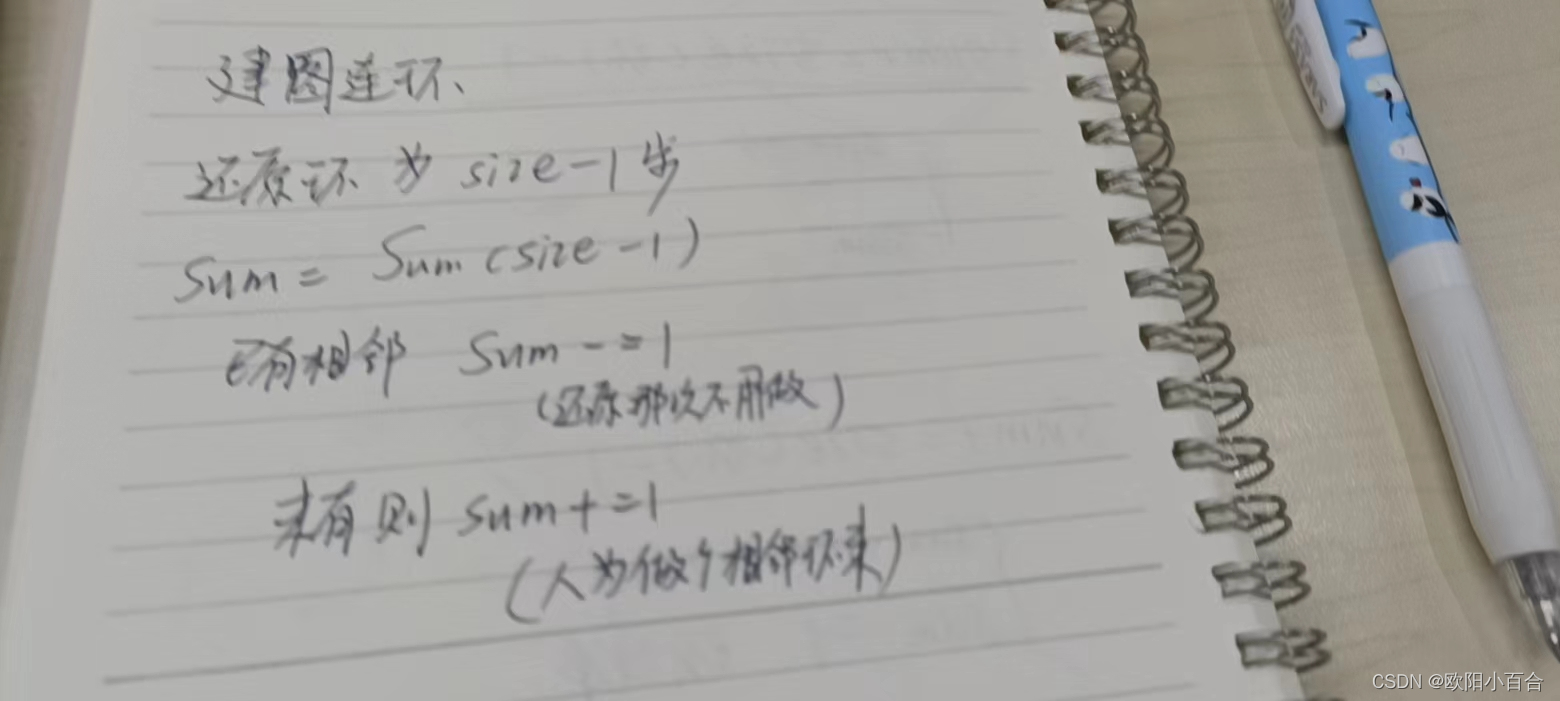 建图连环、
还原环为 size-1步
Sum = Sum (size-1)
已有相邻 Sum -=1
(还原那次不用做)
未有则 sum+=1
(人为做个相邻环来)
CSDN @欧阳小百合